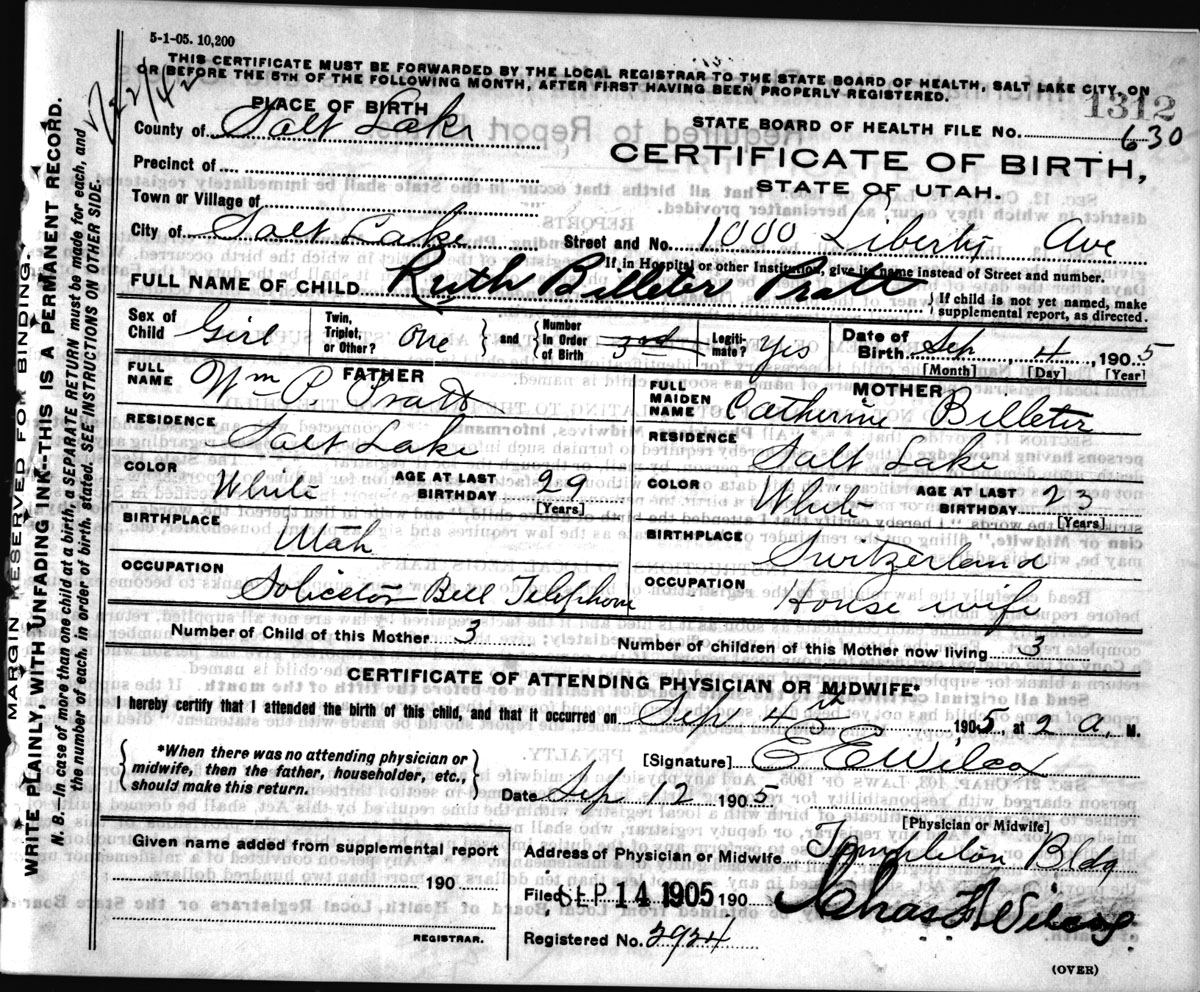 5-1-05. 10,200
THIS CERTIFICATE MUST BE FORWARDED BY THE LOCAL REGISTRAR TO THE STATE BOARD OF HEALTH, SALT LAKE CITY, ON
OR BEFORE THE 5TH OF THE FOLLOWING MONTH, AFTER FIRST HAVING BEEN PROPERLY REGISTERED.
1312
PLACE OF BIRTH
STATE BOARD OF HEALTH FILE No. 630
County of Salt Lake
CERTIFICATE OF BIRTH,
STATE OF UTAH.
Precinct of
Town or Village of
City of Salt Lake Street and No. 1000 Liberty Ave
If in Hospital or other Institution, give its name instead of Street and number.
FULL NAME OF CHILD Ruth Billeter Pratt
If child is not yet named, make
supplemental report, as directed.
Sex of Child Girl Twin, Triplet, or Other? One and Number In Order of Birth 3rd Legiti-mate? Yes Date of Birth. Sep 4 1905
[Month] [Day] [Year]
FATHER
FULL NAME Wm P. Pratt
MOTHER
FULL MAIDEN NAME Catherine Billeter
RESIDENCE Salt Lake
RESIDENCE Salt Lake
COLOR White AGE AT LAST BIRTHDAY 29 [Years]
COLOR White AGE AT LAST BIRTHDAY 23 [Years]
BIRTHPLACE Utah
BIRTHPLACE Switzerland
OCCUPATION Solicitor Bell Telephone
OCCUPATION House wife
Number of Child of this Mother 3 Number of children of this Mother now living 3
CERTIFICATE OF ATTENDING PHYSICIAN OR MIDWIFE*
I hereby certify that I attended the birth of this child, and that it occurred on Sep 4th 1905, at 2 a, M.
*When there was no attending physician or
midwife, then the father, householder, etc.,
should make this return.
[Signature] E E Wilcox
Date Sep 12 1905
[Physician or Midwife]
Given name added from supplemental report
190
REGISTRAR.
Address of Physician or Midwife Templeton Bldg
Filed SEP 14 1905 190
Registered No. 2924
(OVER)
MARGIN RESERVED FOR BINDING.
WRITE PLAINLY WITH UNFADING INK--THIS IS A PERMANENT RECORD.
N. B. In case of more than one child at a birth, a SEPARATE RETURN must be made for each, and
the number of each, in order of birth, stated. SEE INSTRUCTIONS ON OTHER SIDE.